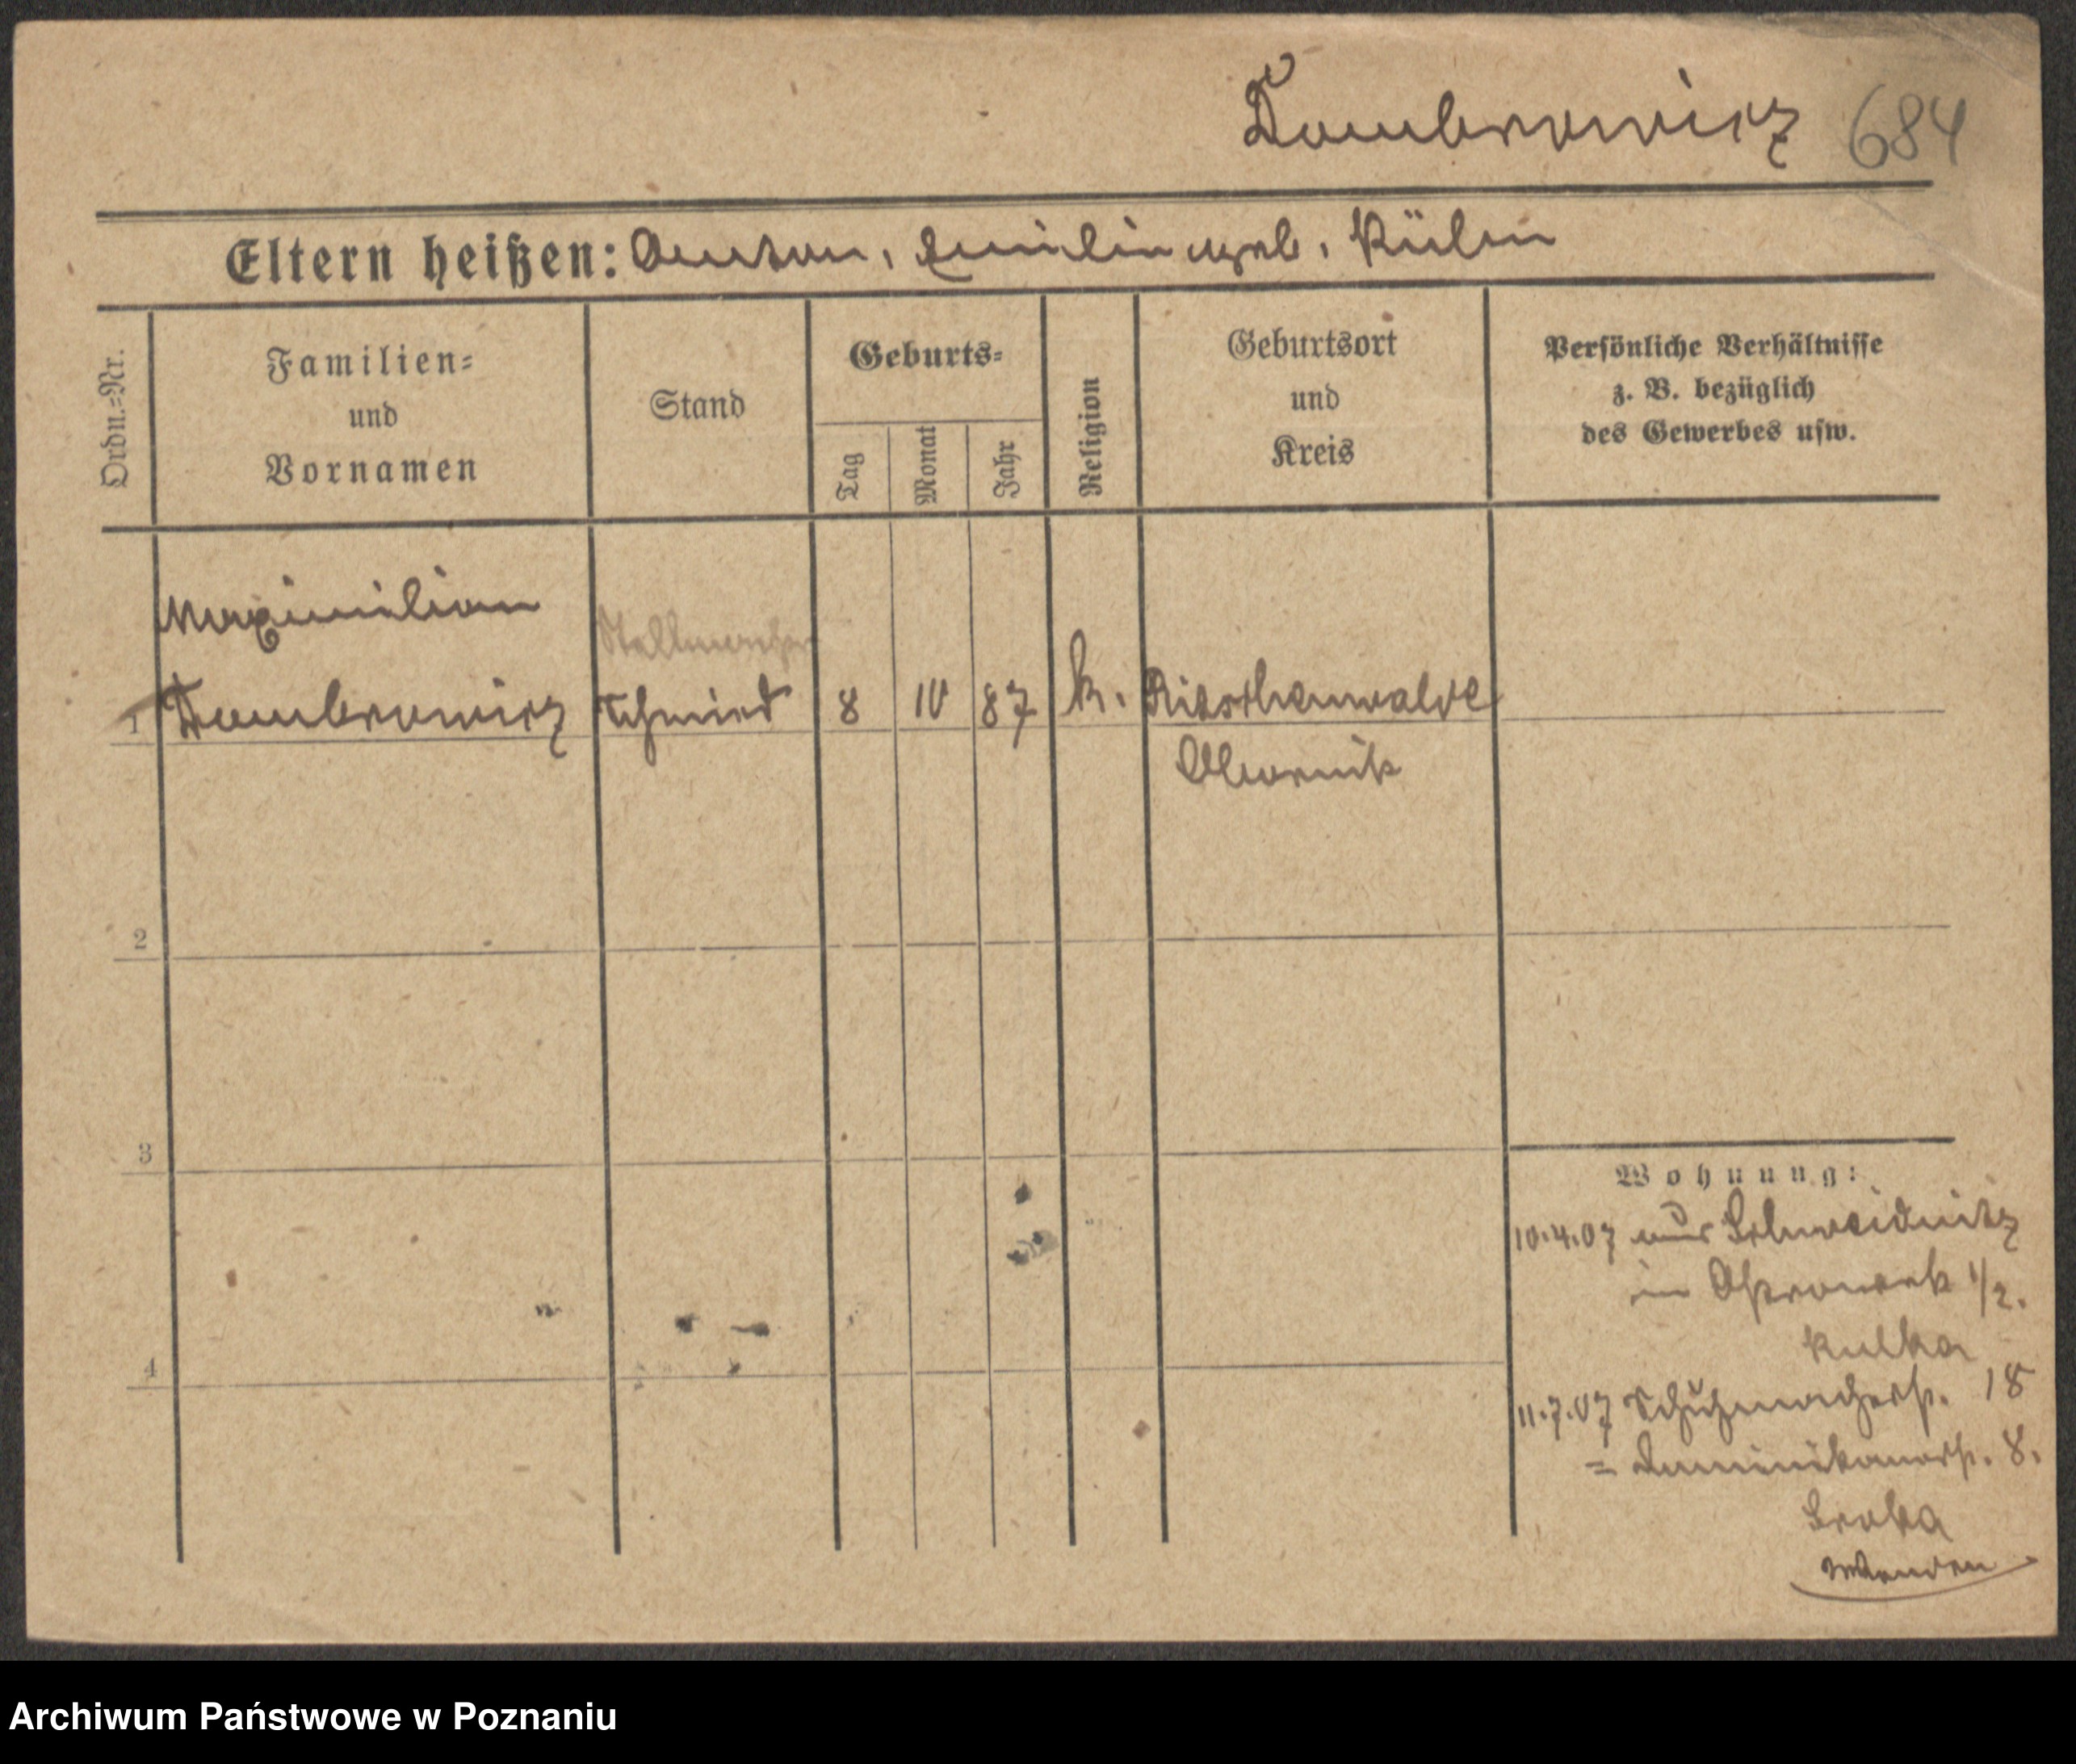 Dombrowicz 684
Eltern heißen: Anton, Emilie geb. Kühn
Ordn.=Nr.
Familien=
und
Vornamen
Stand
Geburts=
Tag
Monat
Jahr
Religion
Geburtsort
und
Kreis
Persönliche Verhältnisse
z. B. bezüglich
des Gewerbes usw.
Maximilian
Stellmacher
1 Dombrowicz Schmied 8 IV 87 k. Ritschenwalde
Obornik
2
3
4
Wohnung:
10.4.07 aus Schweidnitz
in 1/2.
Kulka
11.7.07 Schuhmacherstr. 18
= Dominikanerstr. 8.
Sroka
Wenden
Archiwum Państwowe w Poznaniu